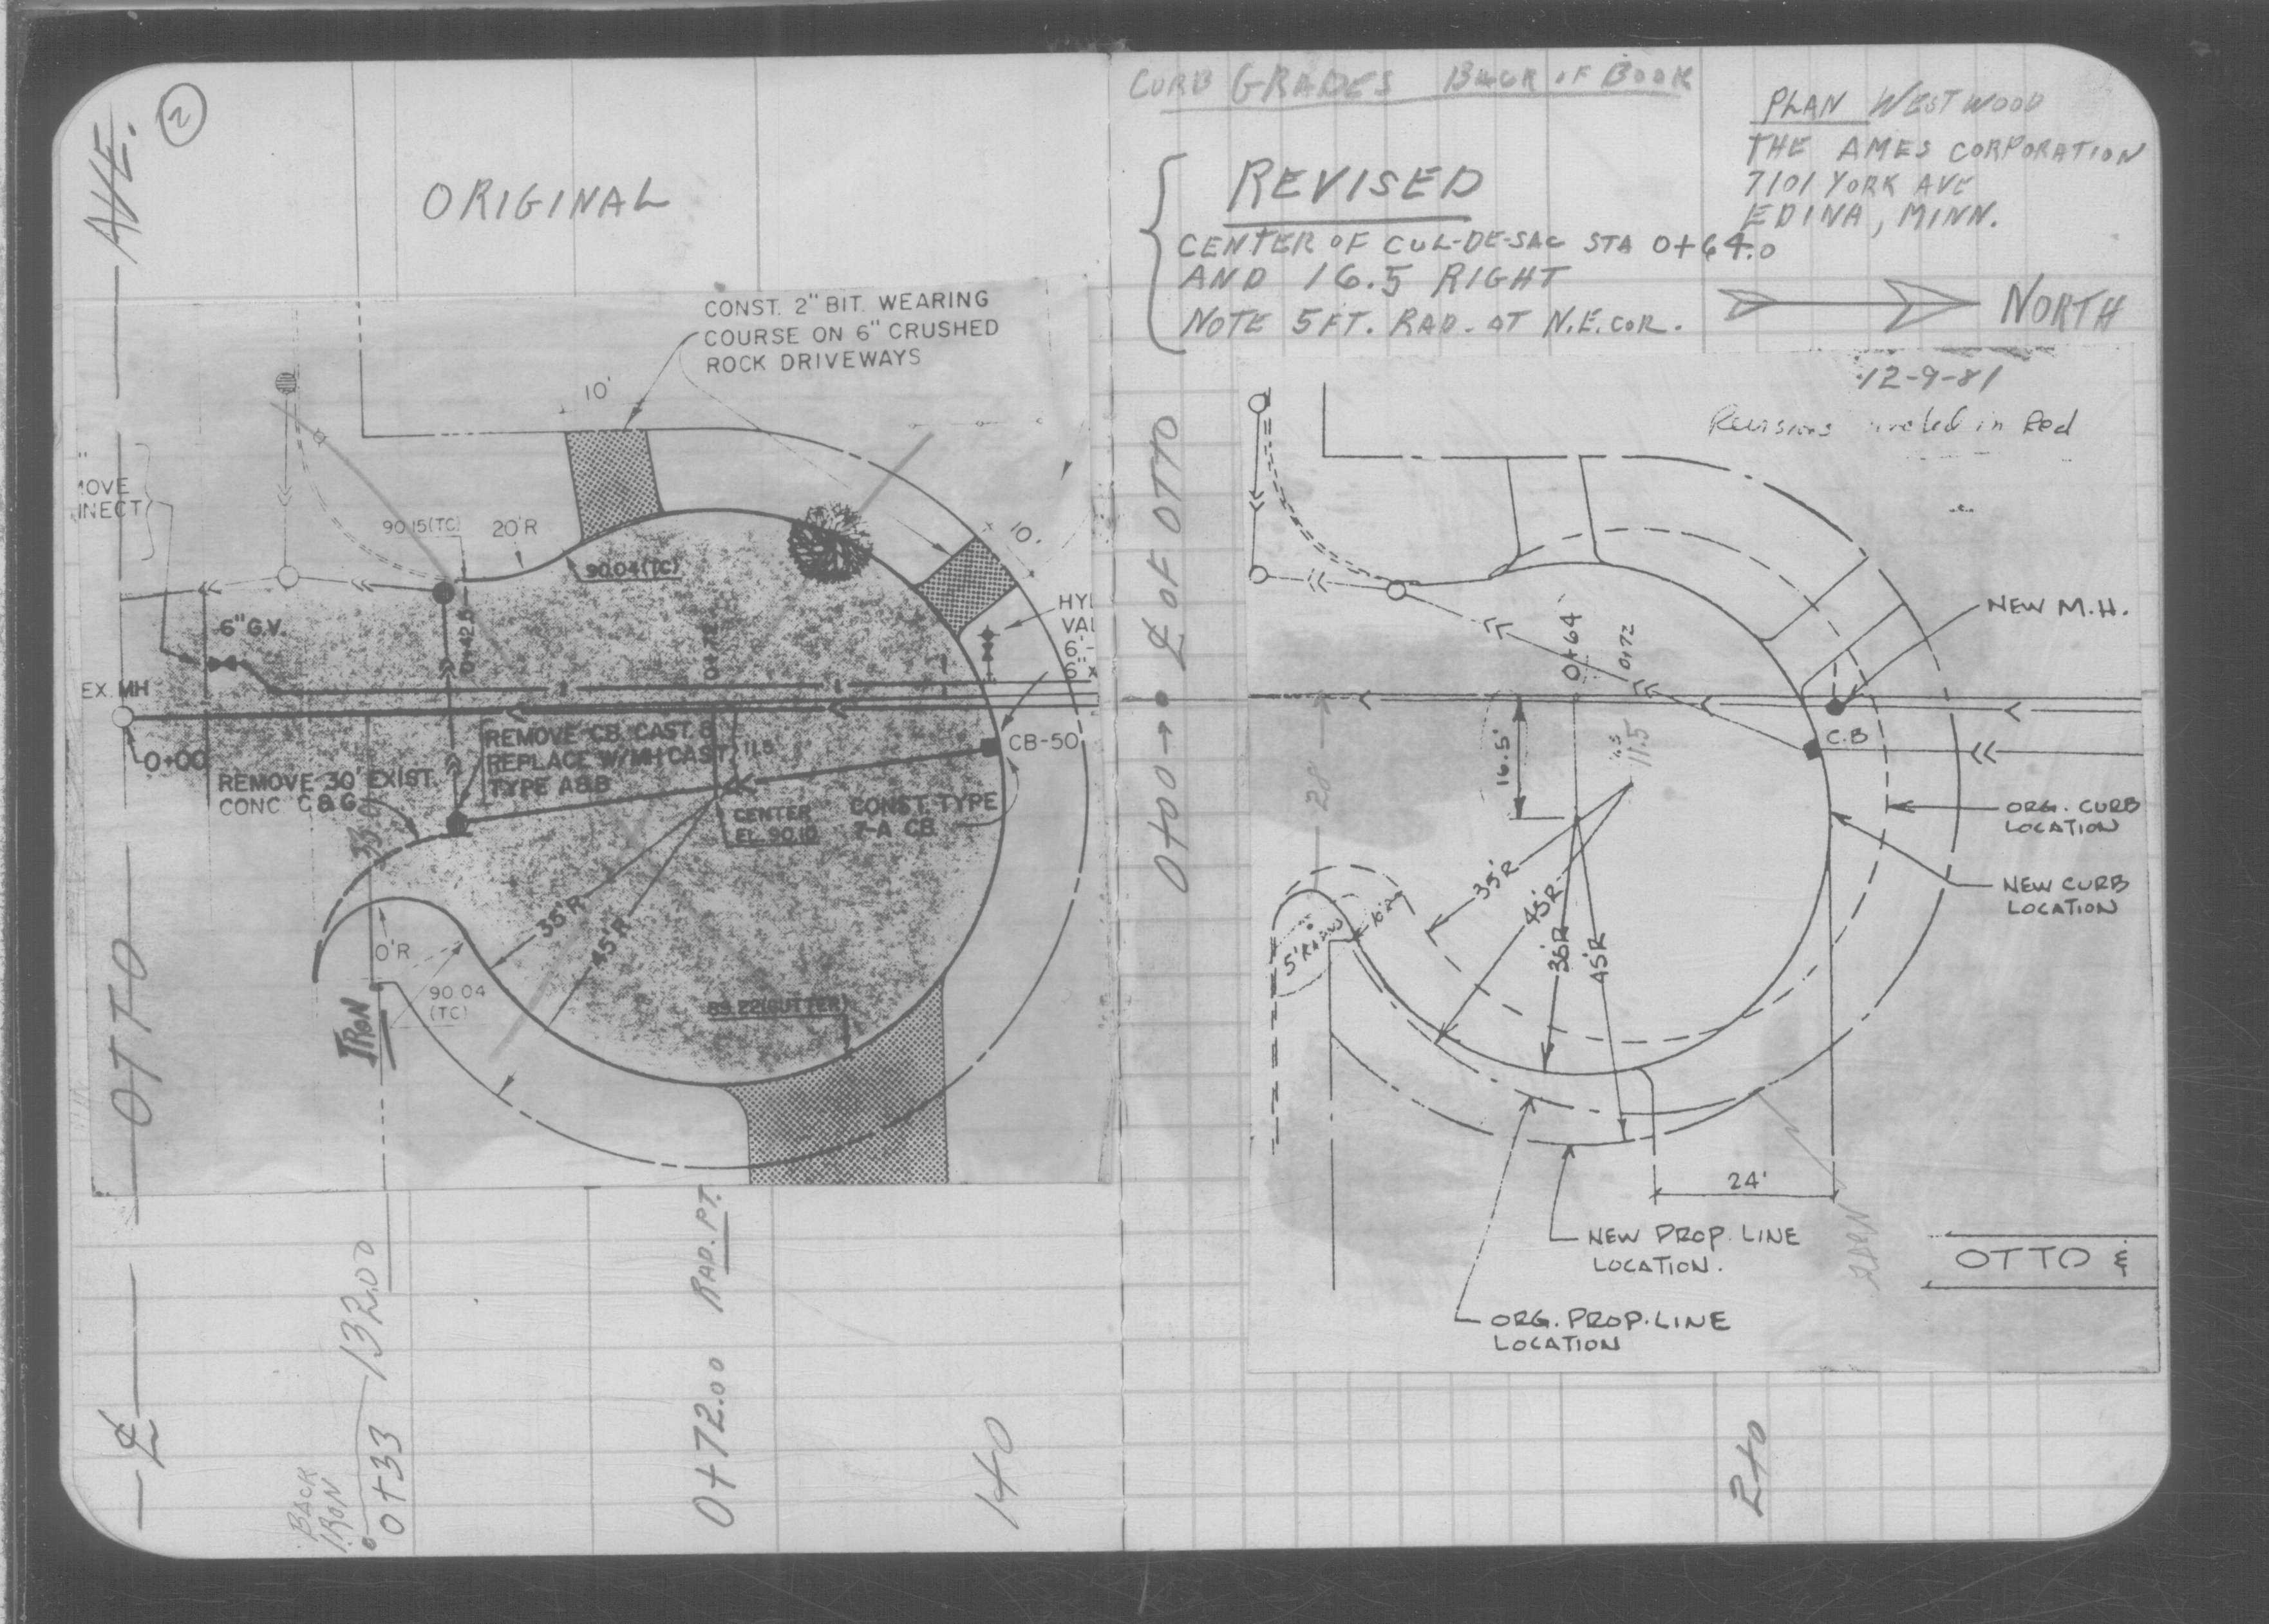 2
AVE.
ORIGINAL
CONST. 2" BIT. WEARING
COURSE ON 6" CRUSHED
ROCK DRIVEWAYS
10'
"
MOVE
NNECT
90.15(TC)
20'R
90.04(TC)
10'
6" G.V.
0+42.5
HY
VAL
6'-
6"x
EX. MH
0+00
REMOVE CB. CAST. &
REPLACE W/MH CAST.
TYPE A&B
11.5
CB-50
REMOVE 30' EXIST.
CONC C & G.
CENTER
EL. 90.10
CONST. TYPE
7-A CB.
35'R
45'R
0'R
90.04
(TC)
89.22(GUTTER)
IRON
OTTO
℄
BACK
IRON
0+33
132.00
0+72.00 RAD. PT.
1+0
CURB GRADES BACK OF BOOK
PLAN WESTWOOD
THE AMES CORPORATION
7101 YORK AVE
EDINA, MINN.
REVISED
CENTER OF CUL-DE-SAC STA 0+64.0
AND 16.5 RIGHT
NOTE 5 FT. RAD. AT N.E. COR.
NORTH
12-9-81
Revisions in Red
0+00 → ℄ OF OTTO
NEW M.H.
0+64
0+72
C.B
16.5'
11.5
28'
ORG. CURB
LOCATION
NEW CURB
LOCATION
35'R
45'R
36'R
45'R
5' RADIUS
24'
NEW PROP. LINE
LOCATION.
OTTO &
ORG. PROP. LINE
LOCATION
2+0